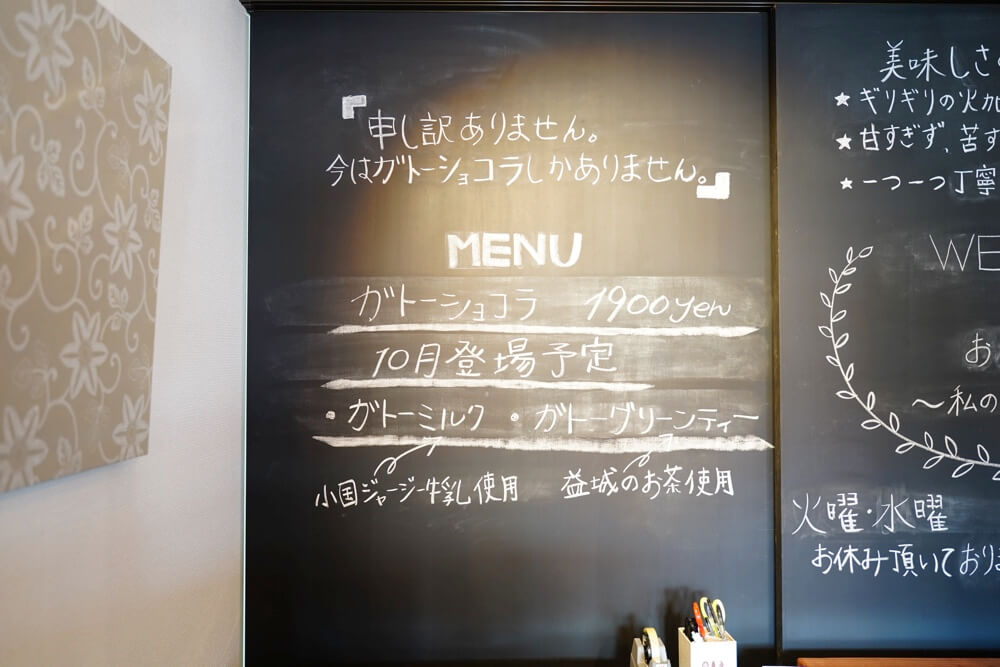 『申し訳ありません。
今はガトーショコラしかありません。』
MENU
ガトーショコラ 1900yen
10月登場予定
・ガトーミルク ・ガトーグリーンティー
小国ジャージー牛乳使用 益城のお茶使用
美味しさの
★ ギリギリの火加
★ 甘すぎず、苦す
★ 一つ一つ丁寧
WE
お
〜私の
火曜・水曜
お休み頂いており